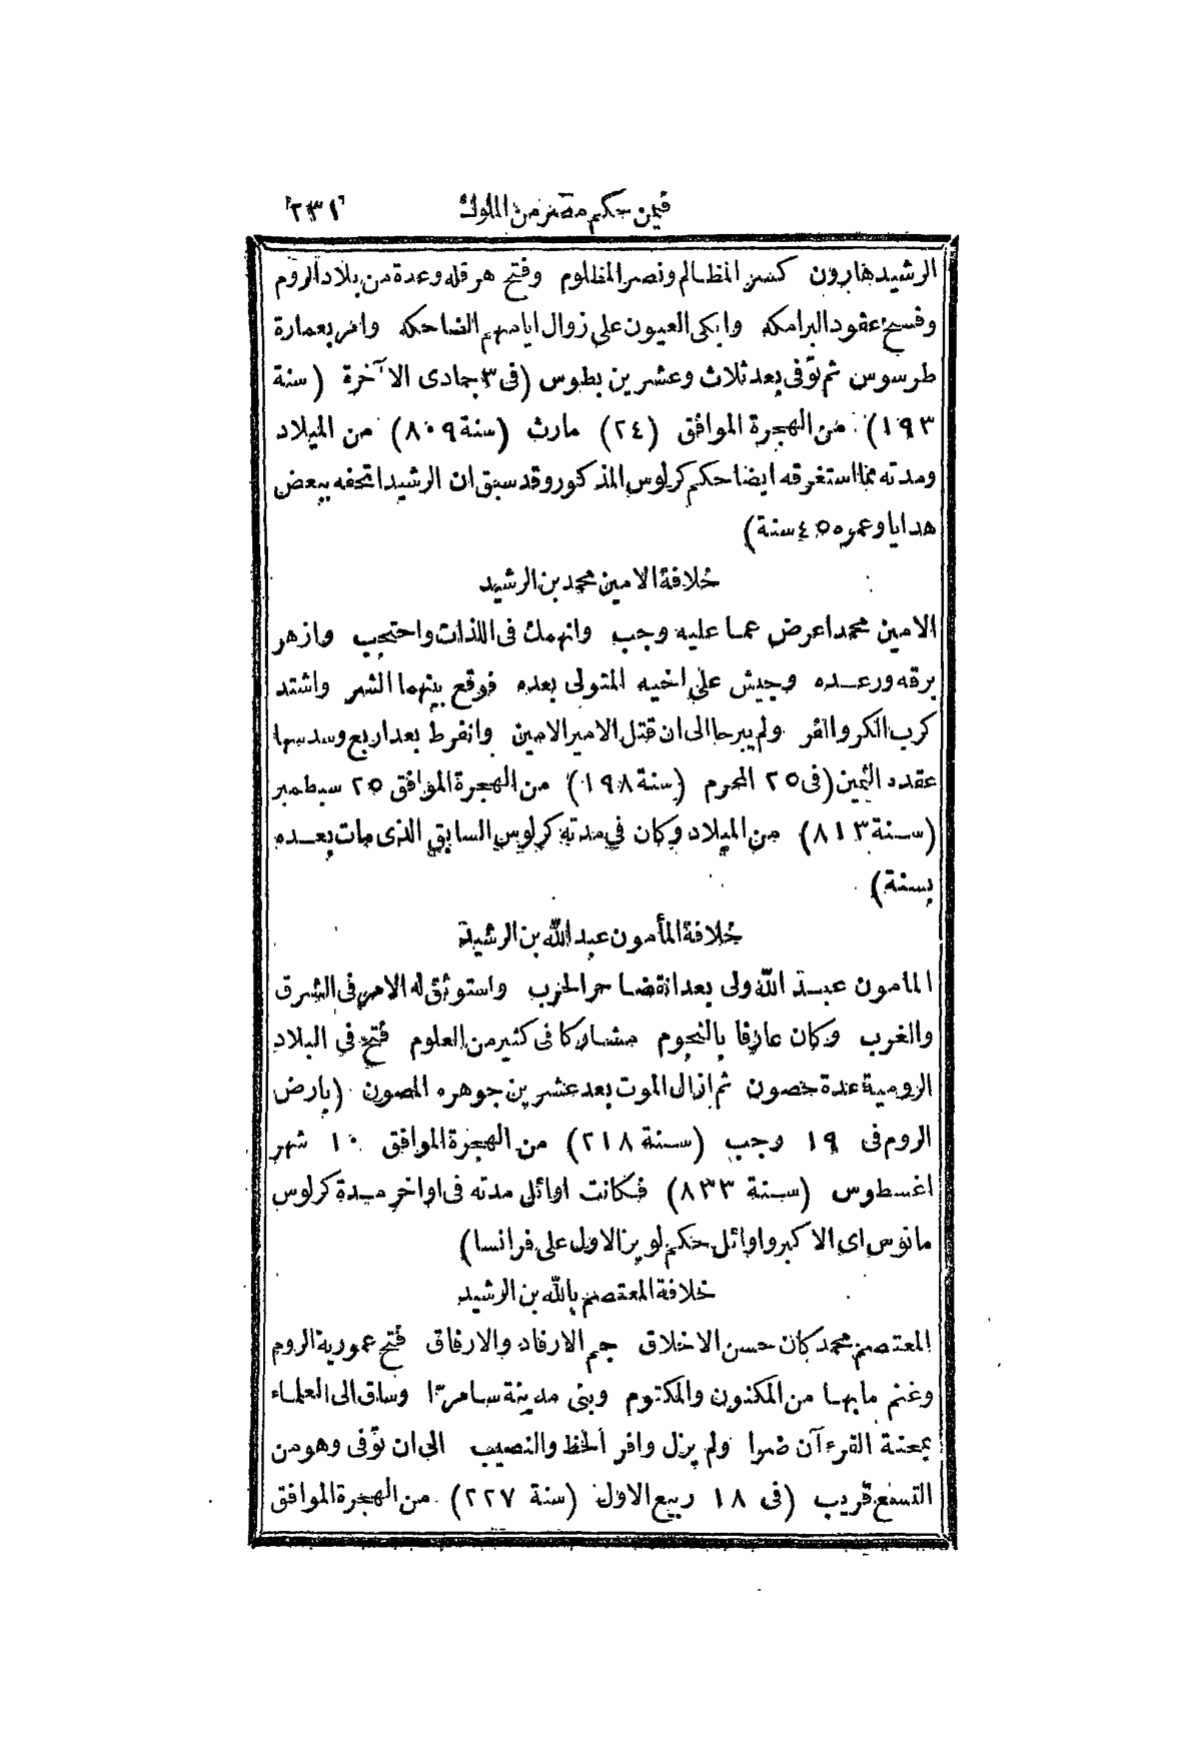 فيمن حكم مصر من الملوك ٢٣١
الرشيد هارون كسر المظالم ونصر المظلوم وفتح هرقله وعدة من بلاد الروم
وفسخ عقود البرامكه وابكى العيون على زوال ايامهم الضاحكه وامر بعمارة
طرسوس ثم توفى بعد ثلاث وعشرين بطوس (فى ٣ جمادى الآخرة (سنة
١٩٣) من الهجرة الموافق (٢٤) مارث (سنة ٨٠٩) من الميلاد
ومدته مما استغرقه ايضا حكم كرلوس المذكور وقد سبق ان الرشيد اتحفه ببعض
هدايا وعمره ٤٥ سنة)
خلافة الامين محمد بن الرشيد
الامين محمد اعرض عما عليه وجب وانهمك فى اللذات واحتجب وازهر
برقه ورعده وجيش على اخيه المتولى بعده فوقع بينهما الشر واشتد
كرب الكر والفر ولم يبرحا الى ان قتل الامير الامين وانفرط بعد اربع وسدسها
عقده الثمين (فى ٢٥ المحرم (سنة ١٩٨) من الهجرة الموافق ٢٥ سبطمبر
(سنة ٨١٣) من الميلاد وكان فى مدته كرلوس السابق الذى مات بعده
بسنة)
خلافة المأمون عبد الله بن الرشيد
المامون عبد الله ولى بعد انقضا حم الحرب واستوثق له الامر فى الشرق
والغرب وكان عارفا بالنجوم مشاركا فى كثير من العلوم فتح فى البلاد
الرومية عدة حصون ثم ازال الموت بعد عشرين جوهره المصون (بارض
الروم فى ١٩ رجب (سنة ٢١٨) من الهجرة الموافق ١٠ شهر
اغسطوس (سنة ٨٣٣) فكانت اوائل مدته فى اواخر مدة كرلوس
مانوس اى الاكبر واوائل حكم لويز الاول على فرانسا)
خلافة المعتصم بالله بن الرشيد
المعتصم محمد كان حسن الاخلاق جم الارفاد والارفاق فتح عمورية الروم
وغنم ما بها من المكنون والمكتوم وبنى مدينة سامرّا وساق الى العلماء
بمحنة القرءآن ضرا ولم يزل وافر الحظ والنصيب الى ان توفى وهو من
التسع قريب (فى ١٨ ربيع الاول (سنة ٢٢٧) من الهجرة الموافق